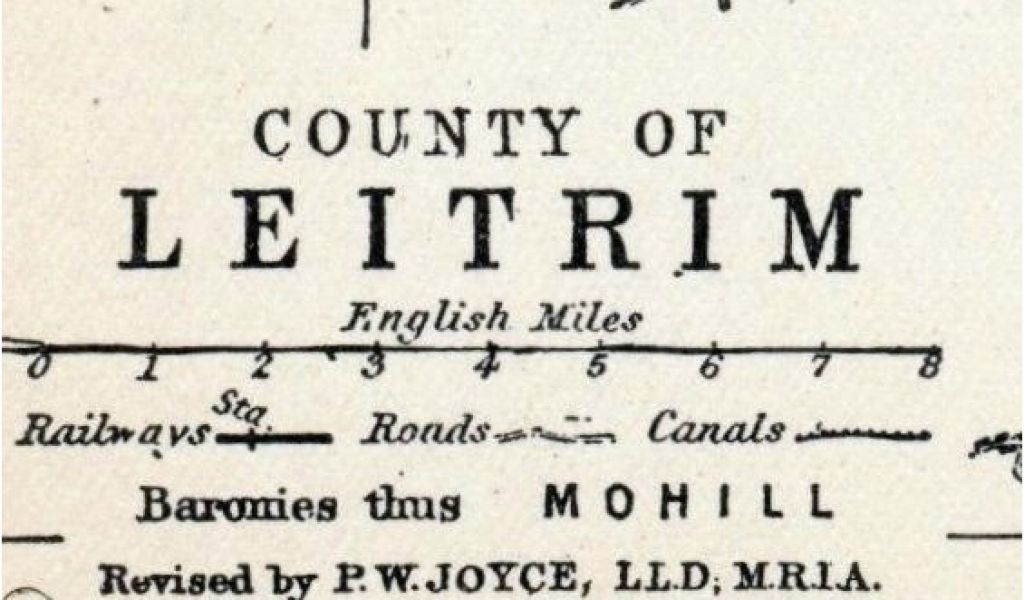 COUNTY OF
LEITRIM
English Miles
0 1 2 3 4 5 6 7 8
Sta.
Railways Roads Canals
Baronies thus MOHILL
Revised by P.W. JOYCE, LL.D; M.R.I.A.